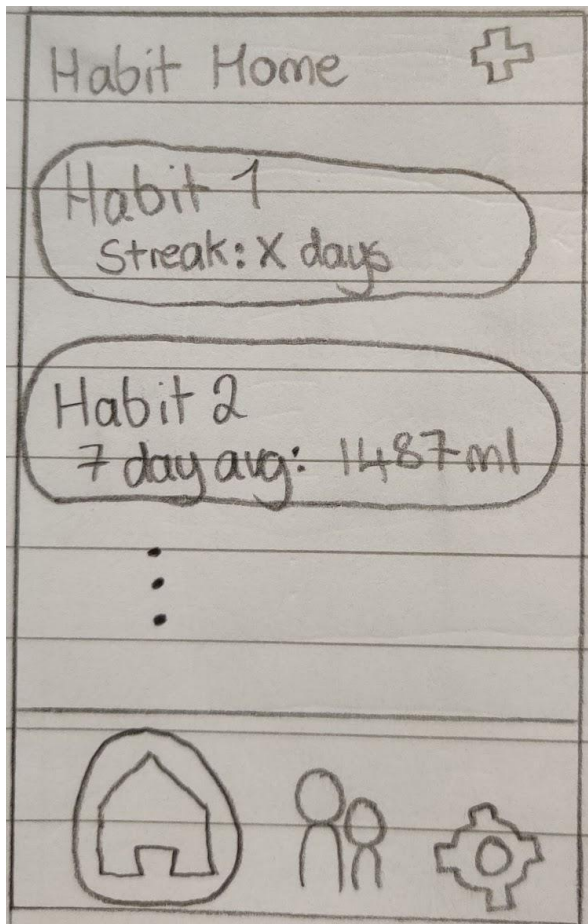 Habit Home
Habit 1
Streak: X days
Habit 2
7 day avg: 1487 ml